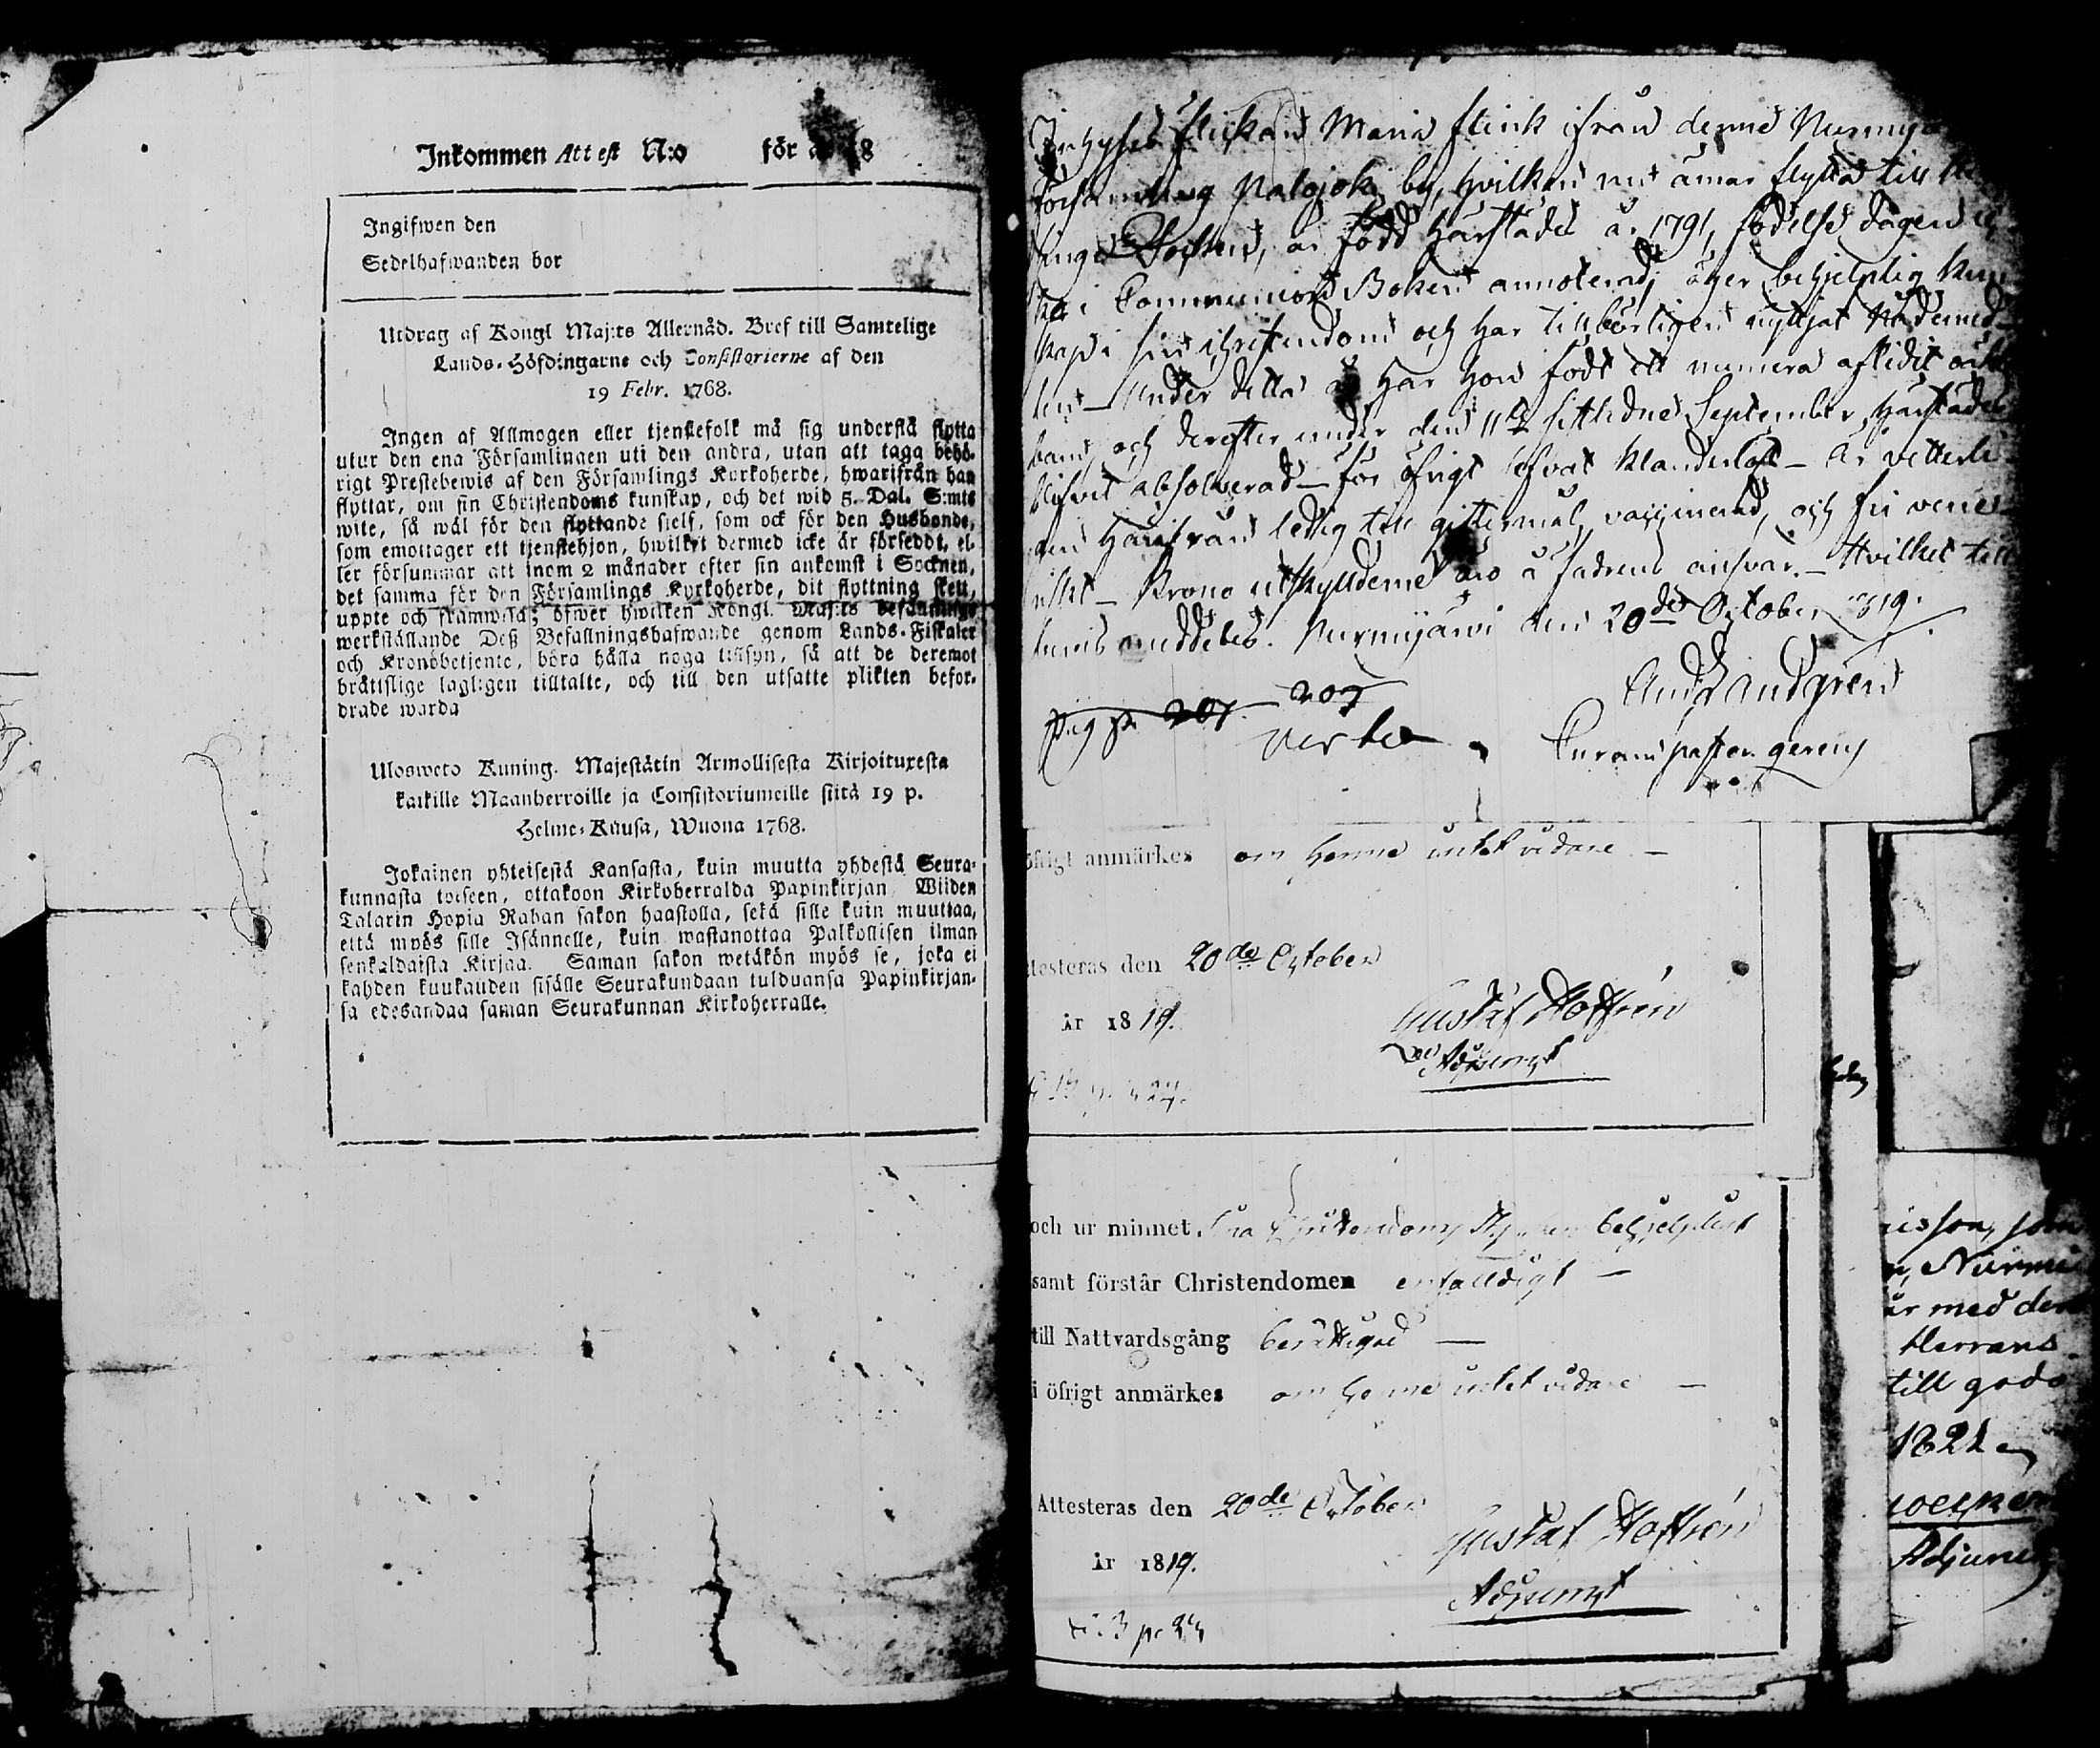 Inkommen Attest N:o för år 18
Ingifwen den
Sedelhafwanden bor
Utdrag af Kongl Maj:ts Allernåd. Bref till Samtelige
Lands-Höfdingarne och Consistorierne af den
19 Febr. 1768.
Ingen af Allmogen eller tjenstefolk må sig understå flytta
utur den ena Församlingen uti den andra, utan att taga behö-
rigt Prestebewis af den Församlings Kyrkoherde, hwarifrån han
flyttar, om sin Christendoms kunskap, och det wid 5. Dal. S:mts
wite, så wäl för den flyttande sielf, som ock för den Husbonde,
som emottager ett tjenstehjon, hwilket dermed icke är försedt, el-
ler försummar att inom 2 månader efter sin ankomst i Socknen,
det samma för den Församlings Kyrkoherde, dit flyttning skett,
uppte och framwisa; öfwer hwilken Kongl. Maj:ts befallnings
werkställande Deß Befallningshafwande genom Lands-Fiskaler
och Kronobetjente, böra hålla noga tillsyn, så att de deremot
bråttslige lagligen tilltalte, och till den utsatte plikten befor-
drade warda
Ulosweto Kuning. Majestätin Armollisesta Kirjoituxesta
kaikille Maanherroille ja Consistoriumeille siitä 19 p.
Helme-Kuusa, Wuona 1768.
Jokainen yhteisestä Kansasta, kuin muutta yhdestä Seura-
kunnasta toiseen, ottakoon Kirkoherralda Papinkirjan Wiiden
Talarin Hopia Rahan sakon haastolla, sekä sille kuin muuttaa,
että myös sille Isännelle, kuin wastanottaa Palkollisen ilman
senkaldaista Kirjaa. Saman sakon wetäkön myös se, joka ei
kahden kuukauden sisälle Seurakundaan tulduansa Papinkirjan-
sa edesandaa saman Seurakunnan Kirkoherralle.
Inhyses flickan Maria Flink ifrån denne Nurmij
församling Palojoki by, hvilken nu ämar flytta till
Socken, är född härstädes år 1791, födelse dagen
i Communion Boken annoterad; äger behjelplig kun
skap i sin christendom och har tillbörligen nyttjat Nådemed
len – Under detta har hon födt ett numera aflidit
barn och derefter under den 11te sistledne September härstädes
blifvit absolverad – för öfrigt lefvat klanderlöst – är vetterli
gen härifrån ledig till giftermål, vaccinerad, och fri
Krono utskylderne äro å fadrens ansvar. – Hvilket till
bevis meddeles. Nurmijärvi den 20de October 1819.
And Landgren
pag 207 207
verte
pastor gerens
öfrigt anmärkes om henne intet vidare –
Attesteras den 20de October
år 1819.
Gustaf Hoffrén
Adjunct
och ur minnet sina Christendoms Stycken behjelpligt
samt förstår Christendomen enfalldigt –
till Nattvardsgång berättigad –
i öfrigt anmärkes om henne intet vidare –
Attesteras den 20de October
år 1819.
Gustaf Hoffrén
Adjunct
isson, som
Nurmi
är med den
Herrans
till godo
1821
Adjunct